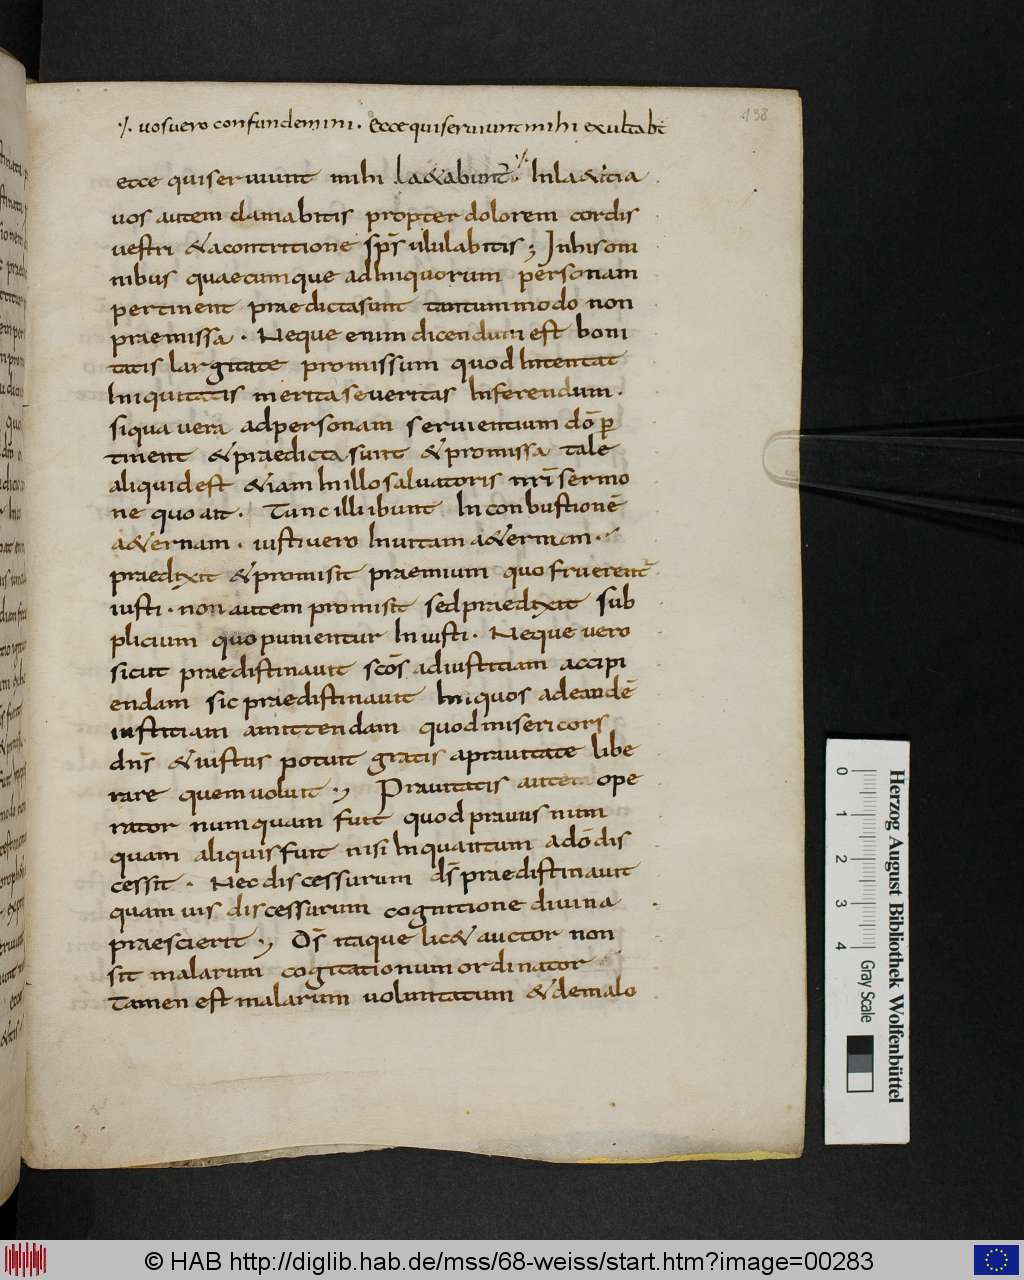 138
·/. uos uero confundemini · Ecce qui seruiunt mihi exultabt
ecce qui seruiunt mihi la&abunt̅ ·/. In la&itia
uos autem clamabitis propter dolorem cordis
uestri & acontritione sp̅s ululabitis ; In his om
nibus quaecumque ad iniquorum personam
pertinent praedicta sunt tantummodo non
praemissa · Neque enim dicendum est boni
tatis largitate promissum quod Intentat
Iniquitatis merita seueritas Inferendum ·
siqua vera ad personam seruientium do̅ p̲
tinent & praedicta sunt & promissa tale
aliquid est &iam In illo saluatoris nr̅i sermo
ne quo ait · Tunc illi ibunt In conbustione̅
a&ernam · iusti uero In uitam a&ernam ·
praedixit & promisit praemium quo fruerent̅
iusti · non autem promisit sed praedixit sub
plicium quo punientur Iniusti · Neque uero
sicut praedistinauit sco̅s ad iustitiam accipi
endam sic praedistinauit Iniquos ad eande̅
iustitiam amittendam quod misericors
dn̅s & iustus potuit gratis aprauitate libe
rare quem uoluit ; Prauitatis autem ope
rator numquam fuit quod prauus num
quam aliquis fuit nisi Inquantum a do̅ dis
cessit · Nec discessurum ds̅ praedistinauit
quamuis discessurum cognitione diuina
praescierit ; Ds̅ itaque lic& auctor non
sit malarum cogitationum ordinator
tamen est malarum uoluntatum & de malo
0 1 2 3 4
Gray Scale
Herzog August Bibliothek Wolfenbüttel
© HAB http://diglib.hab.de/mss/68-weiss/start.htm?image=00283